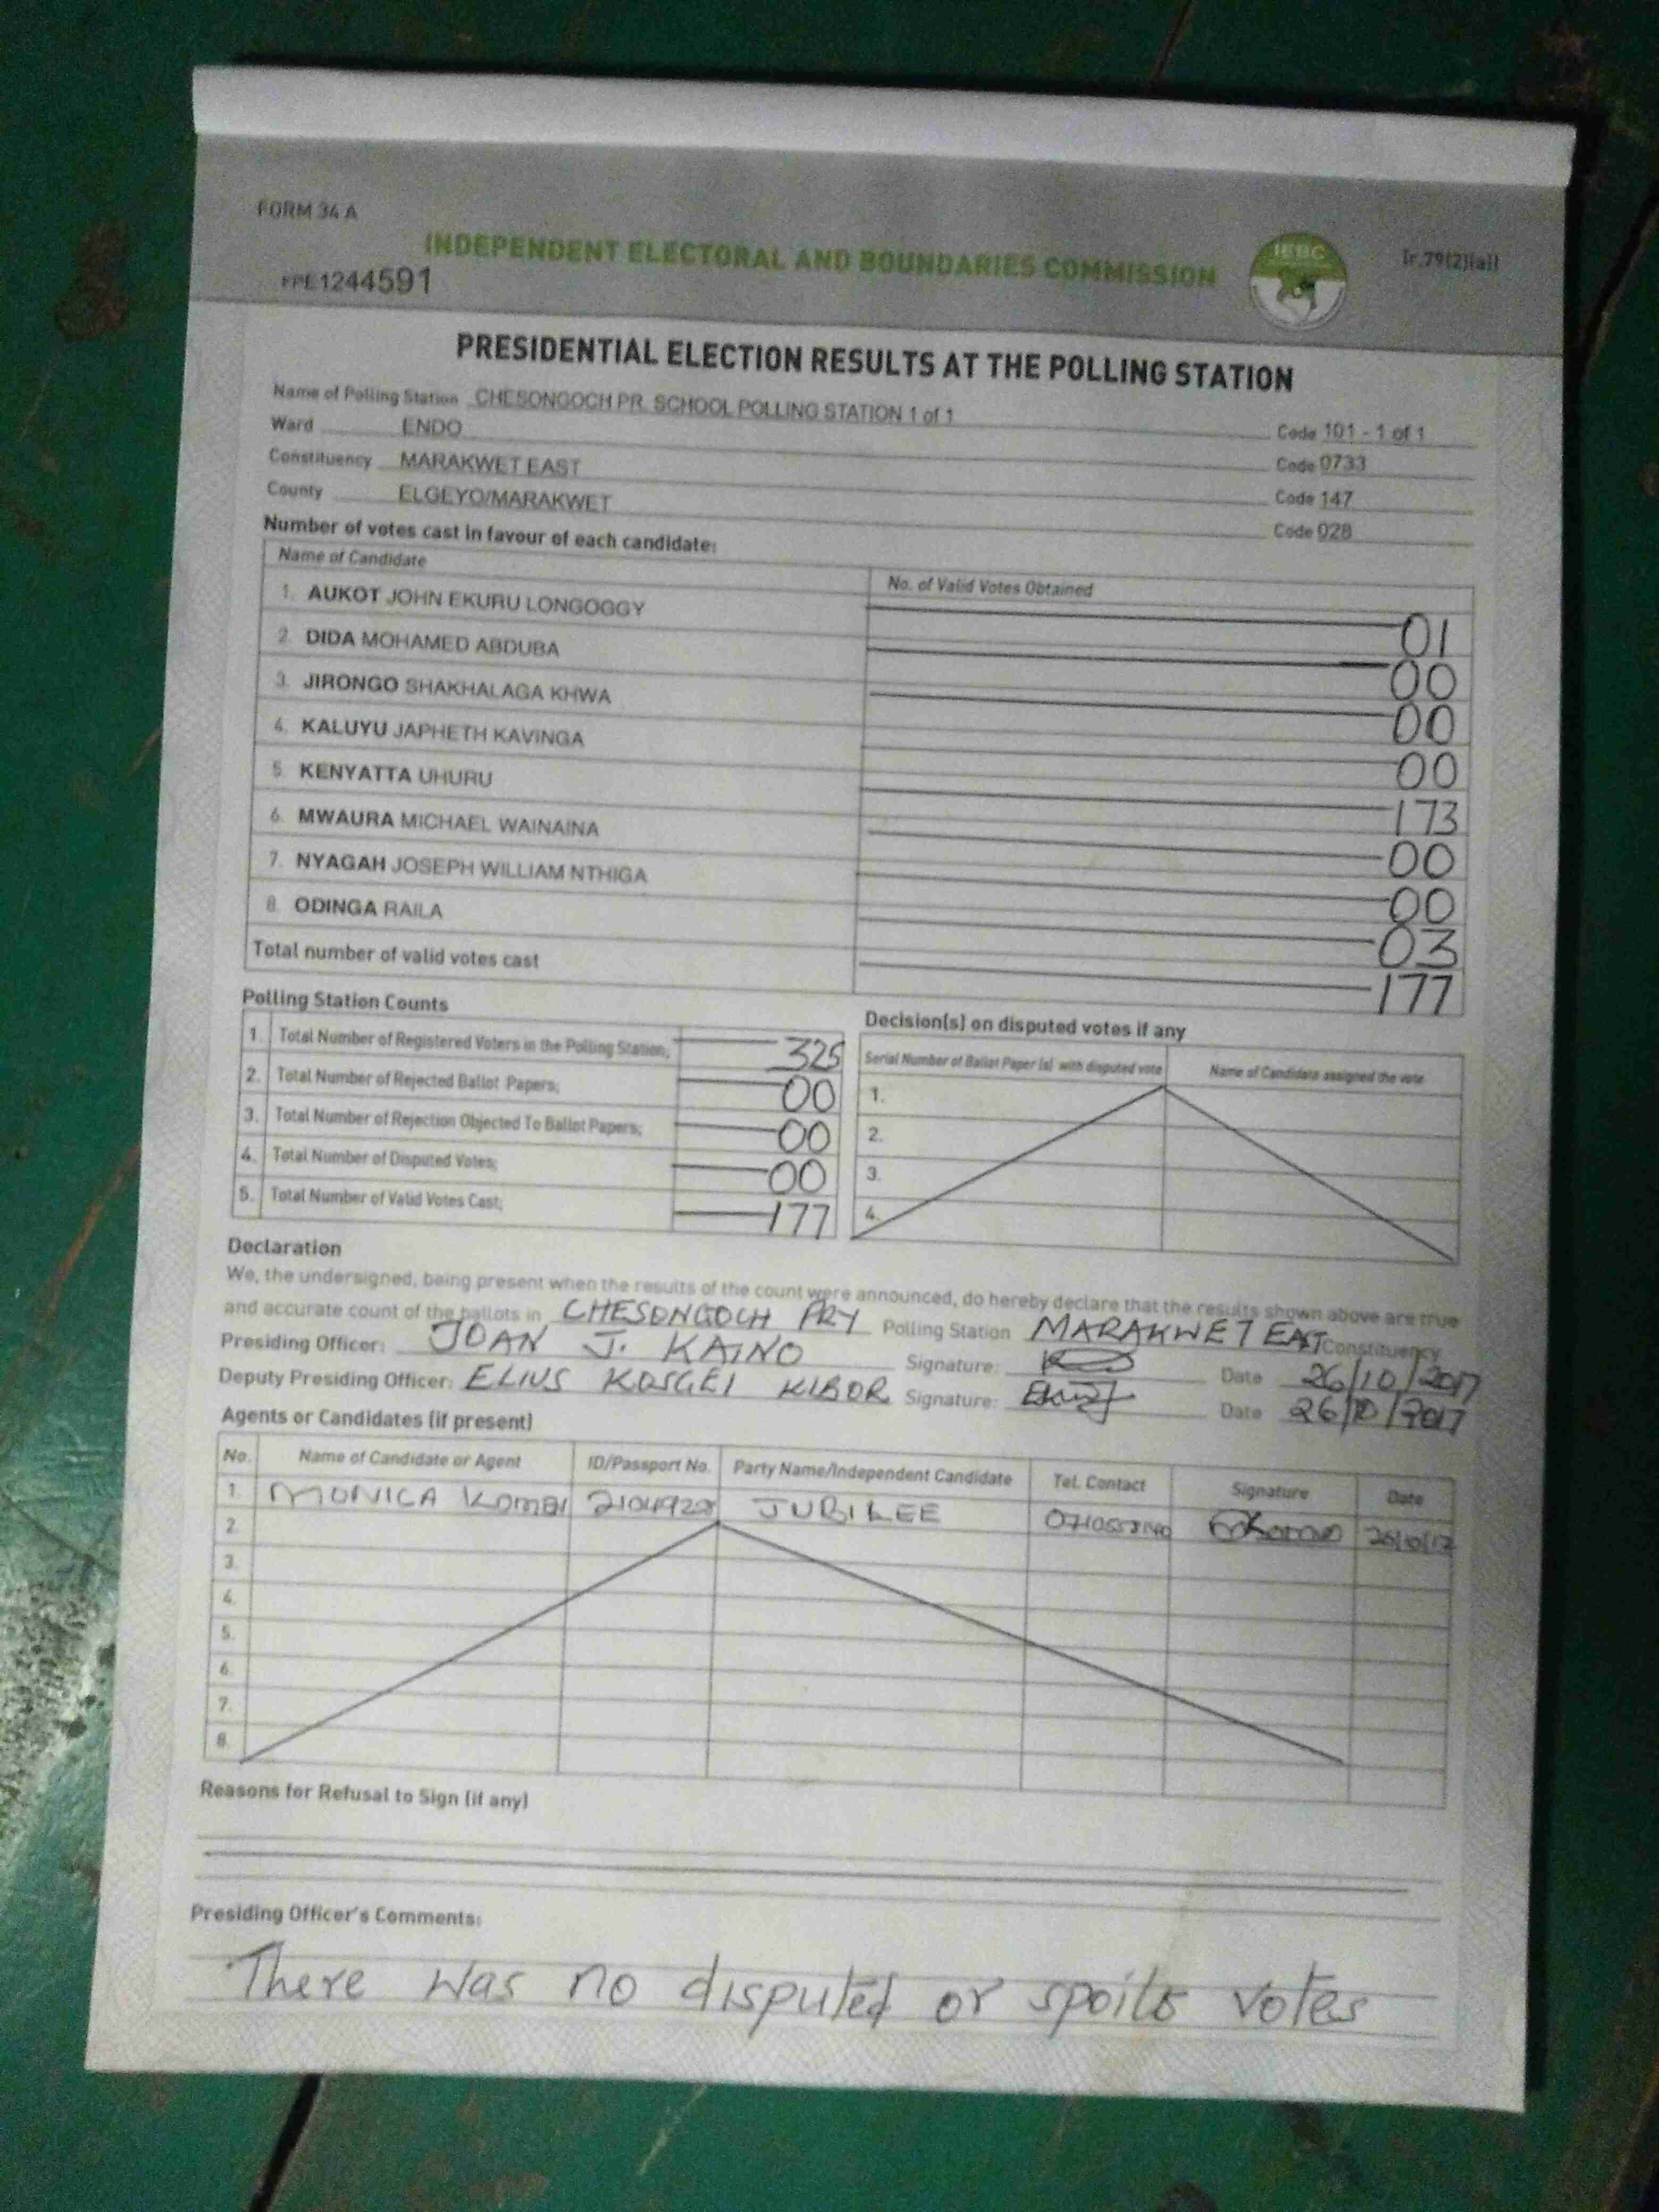 FORM 34 A
INDEPENDENT ELECTORAL AND BOUNDARIES COMMISSION
IEBC
[r.79(2)(a)]
FPE1244591
PRESIDENTIAL ELECTION RESULTS AT THE POLLING STATION
Name of Polling Station CHESONGOCH PR. SCHOOL POLLING STATION 1 of 1 Code 101 - 1 of 1
Ward ENDO Code 0733
Constituency MARAKWET EAST Code 147
County ELGEYO/MARAKWET Code 028
Number of votes cast in favour of each candidate:
Name of Candidate No. of Valid Votes Obtained
1. AUKOT JOHN EKURU LONGOGGY 01
2. DIDA MOHAMED ABDUBA 00
3. JIRONGO SHAKHALAGA KHWA 00
4. KALUYU JAPHETH KAVINGA 00
5. KENYATTA UHURU 173
6. MWAURA MICHAEL WAINAINA 00
7. NYAGAH JOSEPH WILLIAM NTHIGA 00
8. ODINGA RAILA 03
Total number of valid votes cast 177
Polling Station Counts
1. Total Number of Registered Voters in the Polling Station; 325
2. Total Number of Rejected Ballot Papers; 00
3. Total Number of Rejection Objected To Ballot Papers; 00
4. Total Number of Disputed Votes; 00
5. Total Number of Valid Votes Cast; 177
Decision(s) on disputed votes if any
Serial Number of Ballot Paper (s) with disputed vote Name of Candidate assigned the vote
1.
2.
3.
4.
Declaration
We, the undersigned, being present when the results of the count were announced, do hereby declare that the results shown above are true
and accurate count of the ballots in CHESONGOCH PRY Polling Station MARAKWET EAST Constituency
Presiding Officer: JOAN J. KAINO Signature: Date 26/10/2017
Deputy Presiding Officer: ELIUS KOSGEI KIBOR Signature: Date 26/10/2017
Agents or Candidates (if present)
No. Name of Candidate or Agent ID/Passport No. Party Name/Independent Candidate Tel. Contact Signature Date
1. MONICA JUBILEE 26/10/17
2.
3.
4.
5.
6.
7.
8.
Reasons for Refusal to Sign (if any)
Presiding Officer's Comments:
There was no disputed or spoilt votes